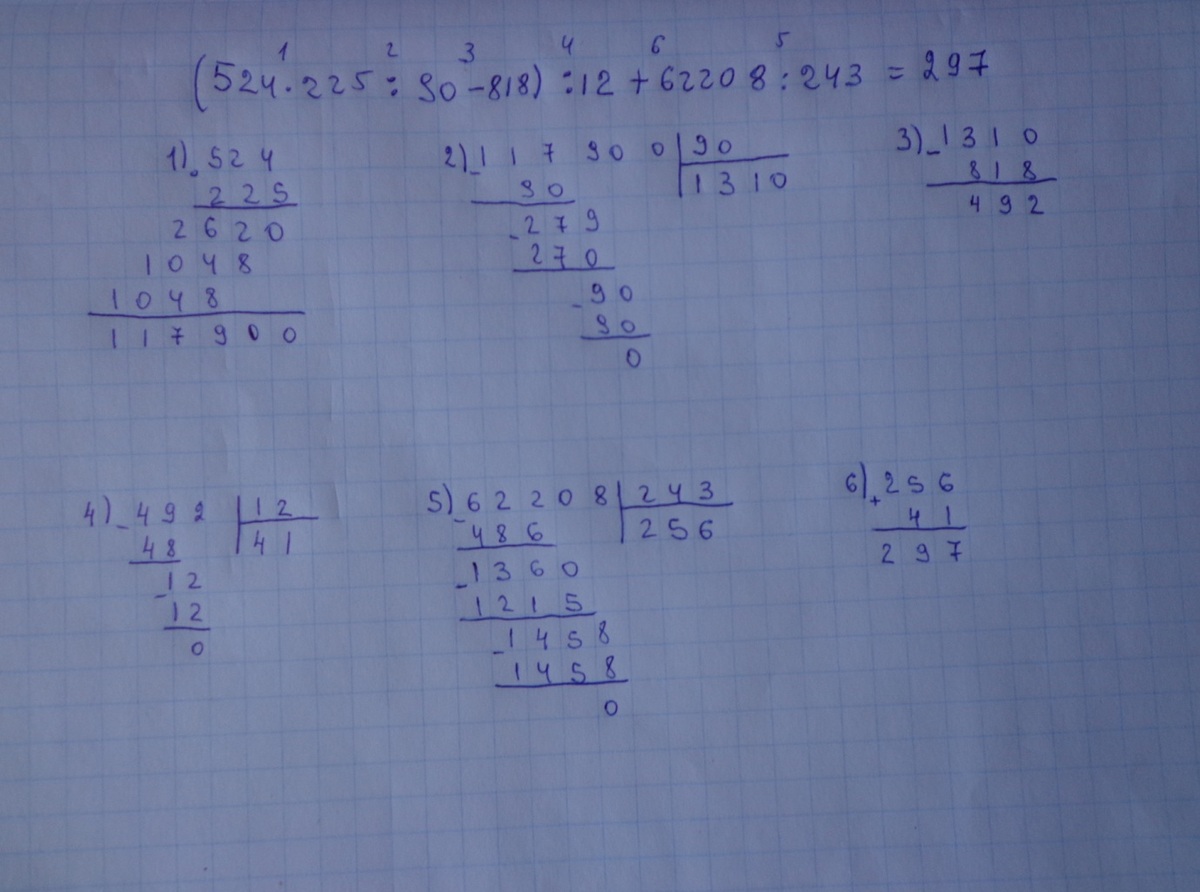 1 2 3 4 6 5
(524·225:90-818):12+62208:243=297
1) 524
225
2620
1048
1048
117900
2) -117900 90
90 1310
-279
270
-90
90
0
3) -1310
818
492
4) -492 12
48 41
-12
12
0
5) -62208 243
486 256
-1360
1215
-1458
1458
0
6) +256
41
297